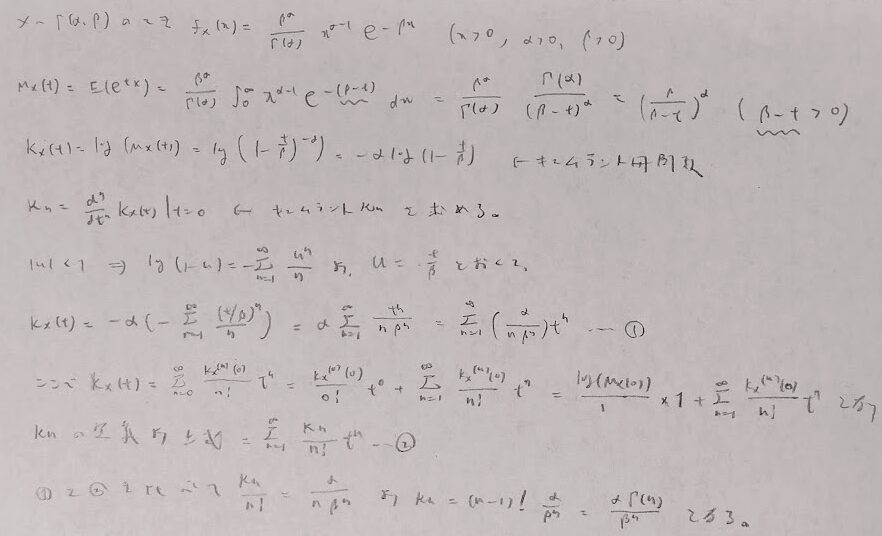 X ~ Γ(α, β) のとき f_X(x) = β^α/Γ(α) x^(α-1) e^(-βx) (x>0, α>0, β>0)
M_X(t) = E(e^(tX)) = β^α/Γ(α) ∫_0^∞ x^(α-1) e^(-(β-t)) dx = β^α/Γ(α) Γ(α)/(β-t)^α = (β/(β-t))^α (β-t>0)
K_X(t) = log(M_X(t)) = log(1-t/β)^(-α) = -α log(1-t/β) ← キュムラント母関数
K_n = d^n/dt^n K_X(t)|t=0 ← キュムラント K_n を求める。
|u|<1 ⇒ log(1-u) = -Σ_{n=1}^∞ u^n/n より, u = t/β とおくと,
K_X(t) = -α(-Σ_{n=1}^∞ (t/β)^n/n) = α Σ_{n=1}^∞ t^n/(nβ^n) = Σ_{n=1}^∞ (α/(nβ^n)) t^n … ①
ここで K_X(t) = Σ_{n=0}^∞ K_X^(n)(0)/n! t^n = K_X^(0)(0)/0! t^0 + Σ_{n=1}^∞ K_X^(n)(0)/n! t^n = log(M_X(0))/1 × 1 + Σ_{n=1}^∞ K_X^(n)(0)/n! t^n となり
K_n の定義より 上式 = Σ_{n=1}^∞ K_n/n! t^n … ②
① と ② を比べて K_n/n! = α/(nβ^n) より K_n = (n-1)! α/β^n = αΓ(n)/β^n となる。